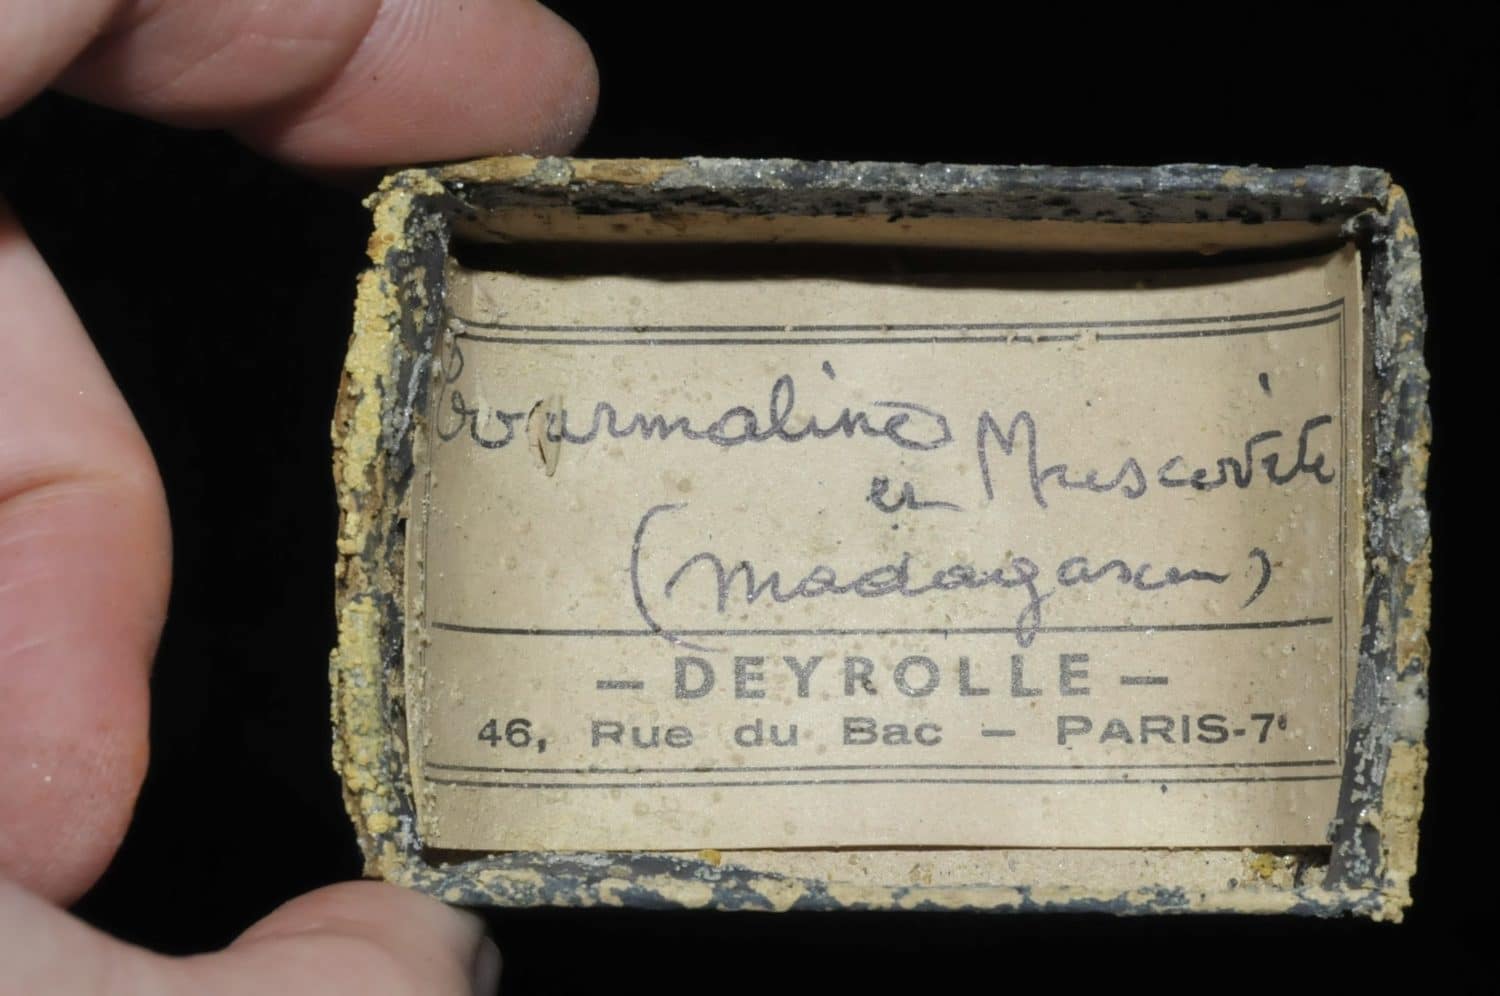 Tourmaline
en Muscovite
(Madagascar)
— DEYROLLE —
46, Rue du Bac — PARIS-7e